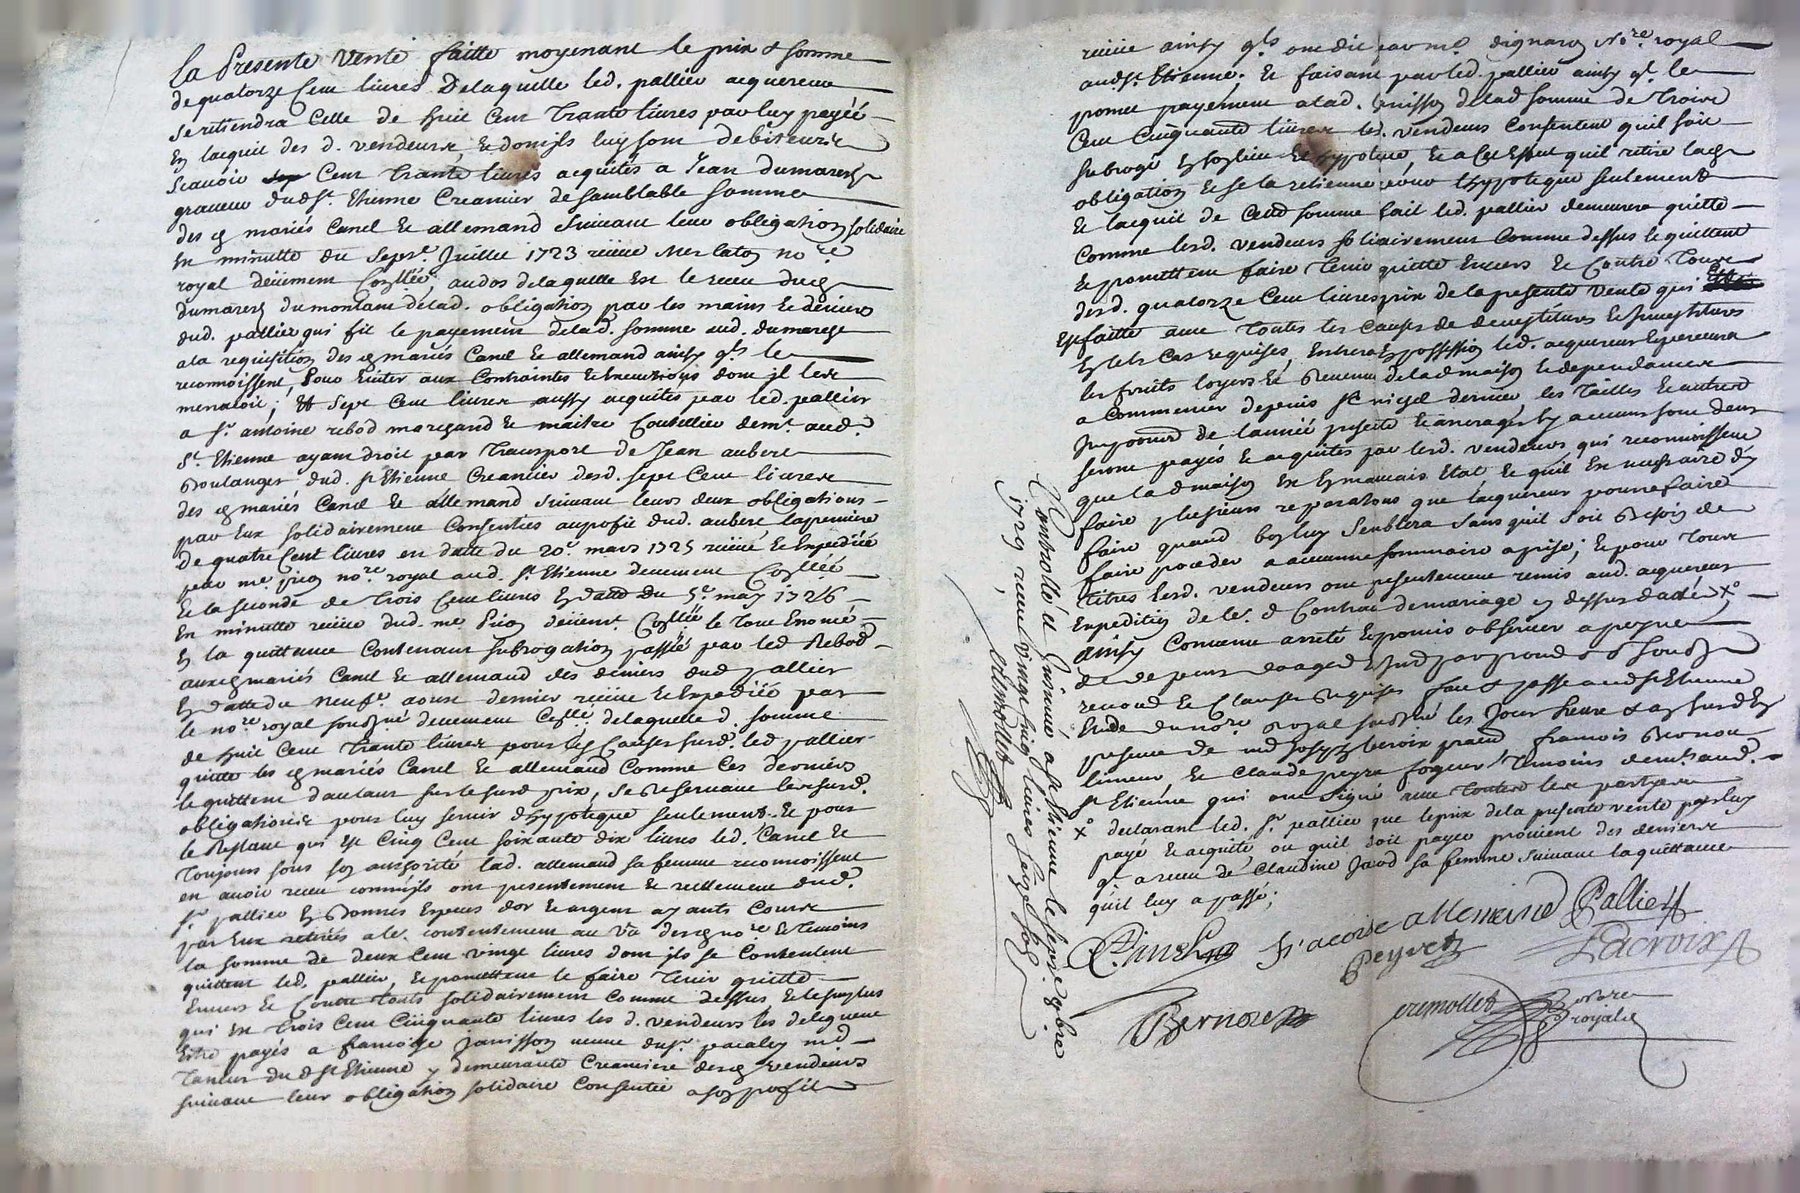 La Presente Vente faitte moyenant le prix & somme
de quatorze Cent livres Delaquelle led. pallier acquereur
se retiendra Celle de huit Cent Trante livres par luy payéé
En lacquit des d. vendeurs & donijls luy sont debiteurs
Scavoir Cent Trante livres acquités a Jean dumarest
graveur dud St. Etienne Creancier de semblable somme
des mariés Canel & allemand Suivant leur obligation solidaire
En minutte du Sept.e Juillet 1723 receue no.re
royal deüement Coñllée, au dos delaquelle est le receu dud
dumarest du montant delad. obligation par les mains & deniers
dud. pallier qui fit le payement delad. somme aud. dumarest
a la requisition des mariés Canel & allemand ainsy qls le
reconnoissent, pour Eviter aux Contraintes & Executions dont jl les
menacoit; & Sept Cent livres aussy acquités par led. pallier
a Sr. antoine rebod marchand & maitre Coutellier demt. aud.
St. Etienne ayant droit par Transport de Jean aubert
Boulanger dud. St Etienne Creancier desd. sept Cent livres
des mariés Canel & allemand Suivant leurs deux obligations
par Eux solidairement Consenties au profit dud. aubert la premiere
De quatre Cent livres en datte du 20e. mars 1725 receue & Expediée
par me. no.re royal aud. St. Etienne deuement Coñllée
& la seconde de Trois Cent livres En datte du 5e. may 1726
En minutte receue dud. me deüemt. Coñllée le Tout Enoncé
En la quittance Contenant subrogation passée par led Rebod
aux mariés Canel & allemand des deniers dud pallier
En datte du neufe. aoust dernier receue & Expediée par
le no.re royal soussigné deuement Coñllé delaquelle d. somme
de huit Cent Trante livres pour les Causes susd. led pallier
quitte les mariés Canel & allemand Comme Ces derniers
le quittent d'autant sur le susd prix, se reservant les susd.
obligations pour luy servir d'hypoteque seulement. & pour
le Restant qui est Cinq Cent soixante dix livres led. Canel &
Toujours sous son authorité lad. allemand sa femme reconnoissent
en avoir receu comm'jls ont presentement & reellement dud.
Sr. pallier En Bonnes Especes d'or & argent ayants Cours
par Eux retirés a le. contentement au Vû no.re & Temoins
la somme de deux Cent vingt livres dont jls se Contentent
quittent led. pallier, & promettent le faire Tenir quitte
Envers & Contre Touts solidairement Comme dessus & le surplus
qui est Trois Cent Cinquante livres les d. vendeurs les deleguent
Estre payés a francoise Janisson veuve du Sr. md.
Tanneur du d St Etienne y demeurante Creanciere des vendeurs
suivant leur obligation solidaire Consentie a son profit
receüe ainsy qls ont dit par me. dignaron No.re royal
aud St. Etienne; & faisant par led. pallier ainsy ql. le
promet payement a lad. Janisson delad somme de Trois
Cent Cinquante livres les. vendeurs Consentent qu'il soit
subrogé En son lieu & hypoteque, & a Cet Effet qu'il retire lad
obligation & se la retienne pour L'hypoteque seulement
& lacquit de Cette somme fait led. pallier demeurera quitte
Comme lesd. vendeurs solidairement Comme dessus le quittent
& promettent faire Tenir quitte Envers & Contre Tous
desd. quatorze Cent livres prix de la presente Vente qui
Est faitte avec Toutes les Causes de devestitures & Jnvestitures
En tels Cas requises, Entrera En possession led. acquereur & percevra
les fruits loyers & Revenus delad maison & dependances
a Commencer depuis St michel dernier les Tailles & autres
Jmposons. de l'année presente & arerages sy aucuns sont deus
seront payés & acquités par lesd. vendeurs qui reconnoissent
que lad maison est En mauvais Etat & qu'il est necessaire d'y
faire plusieurs reparations que lacquereur pourra faire
faire quand bon luy semblera sans qu'il soit Besoin de
faire proceder a aucunne sommaire aprise; & pour Tous
titres lesd. vendeurs ont presentement remis aud. acquereur
Expedition de le. d Contrat de mariage cy dessus datté; X°
ainsy Convenu arreté & promis observer a peyne
de de pens domages
renond. & Clauses Requises fait & passé aud St Etienne
Etude du no.re Royal soussigné les Jour heure & an susd En
presence de md Joseph lacroix francois Bernou
limeur & Claude peyret Temoins demts. aud.
St Etienne qui ont signé avec Toutes les parties
X° declarant led. Sr. pallier que le prix dela presente vente par luy
payé & acquitté ou qu'il doit payer provient des deniers
ql a receu de Claudine Javod sa femme suivant la quittance
qu'il luy a passé;
francoise allemand Pallier
Peyret Lacroix
Bernou
cremollet Notaire
royal
Controllé et Insinué a St Etienne le seize 8bre
1729 receu vingt huit livres seize sols
cremollet